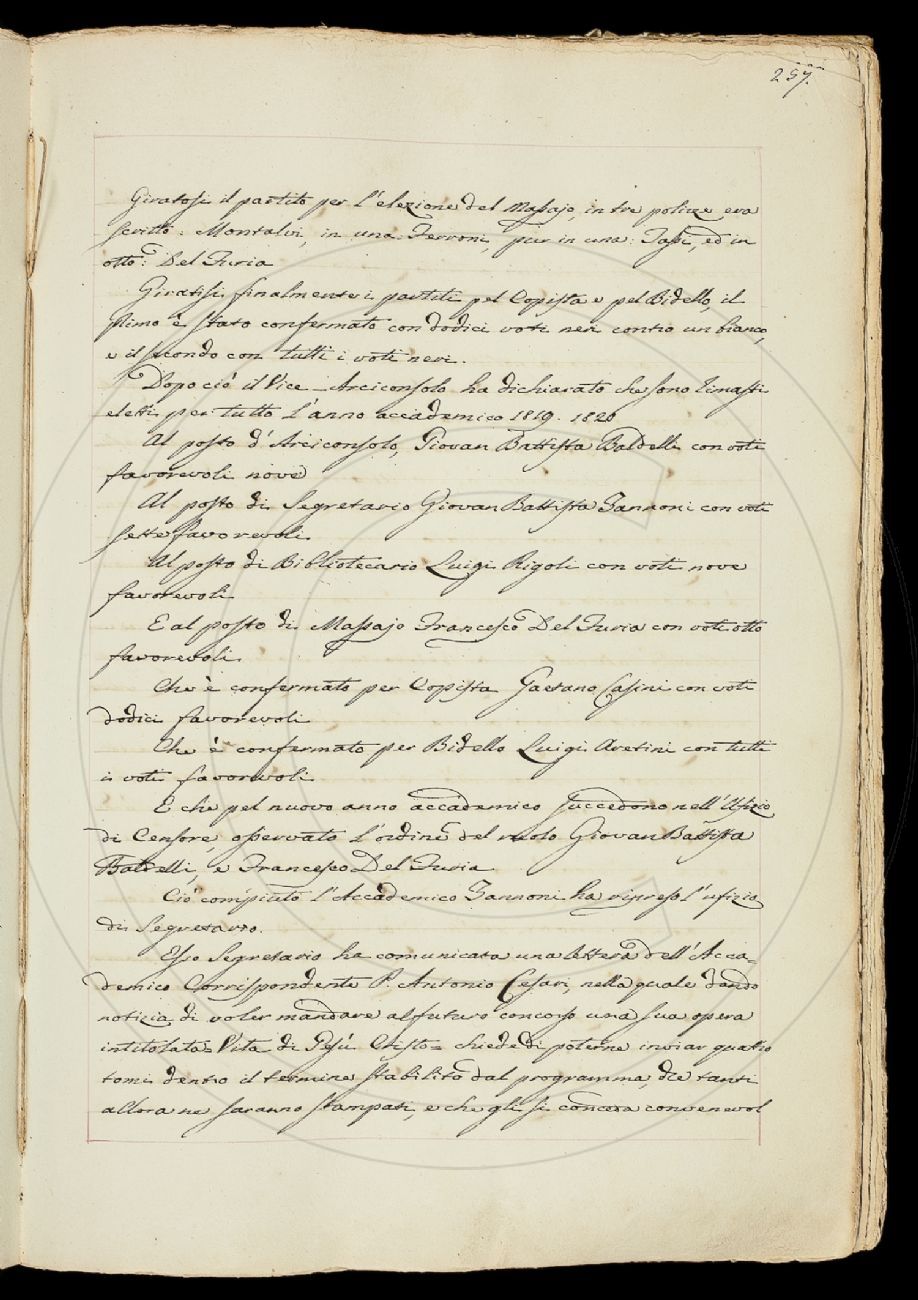 257.
Giratosi il partito per l'elezione del Massajo, in tre polizze era
scritto: Montalvi, in una: Ferroni, pur in una: Tassi, ed in
otto: Del Furia
Giratisi finalmente i partiti pel Copista e pel Bidello, il
primo è stato confermato con dodici voti neri contro un bianco,
e il secondo con tutti i voti neri.
Dopo ciò il Vice-Arciconsolo ha dichiarato che sono rimasti
eletti per tutto l'anno accademico 1819. 1820
Al posto d'Arciconsolo, Giovan Battista Baldelli con voti
favorevoli nove
Al posto di Segretario Giovan Battista Zannoni con voti
sette favorevoli.
Al posto di Bibliotecario Luigi Rigoli con voti nove
favorevoli
E al posto di Massajo Francesco Del Furia con voti otto
favorevoli.
Che è confermato per Copista Gaetano Casini con voti
dodici favorevoli
Che è confermato per Bidello Luigi Aretini con tutti
i voti favorevoli
E che pel nuovo anno accademico succedono nell'Ufizio
di Censore, osservato l'ordine del ruolo Giovan Battista
Baldelli, e Francesco Del Furia
Ciò compiuto l'Accademico Zannoni ha ripreso l'ufizio
di Segretario.
Esso Segretario ha comunicata una lettera dell'Acca-
demico Corrispondente P. Antonio Cesari, nella quale dando
notizia di voler mandare al futuro concorso una sua opera
intitolata = Vita di Gesù Cristo = chiede di poterne inviar quattro
tomi dentro il termine stabilito dal programma che tanti
allora ne saranno stampati, e che gli si conceda convenevol